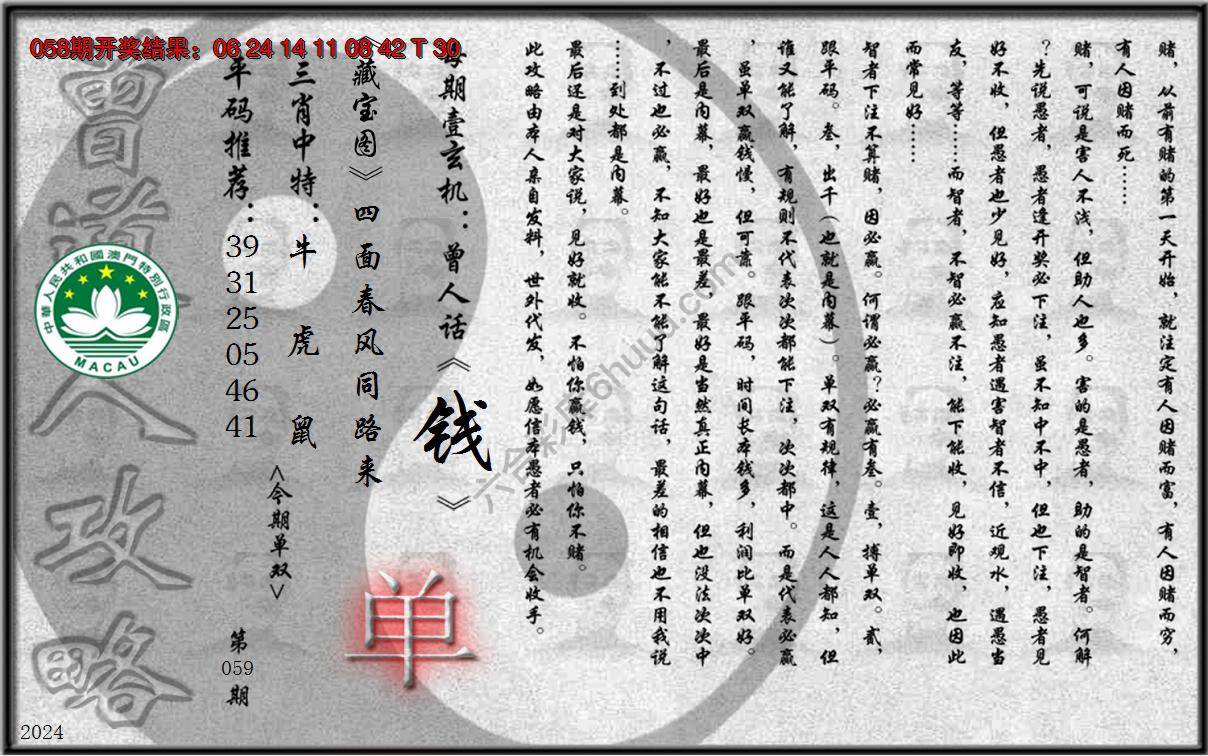 058期开奖结果：06 24 14 11 08 42 T 30
赌，从前有赌的第一天开始，就注定有人因赌而富，有人因赌而穷，
有人因赌而死……
赌，可说是害人不浅，但助人也多。害的是愚者，助的是智者。何解
？先说愚者，愚者逢开奖必下注，虽不知中不中，但也下注，愚者见
好不收，但愚者也少见好，应知愚者遇害智者不信，近观水，遇愚当
友，等等……而智者，不智必赢不注，能下能收，见好即收，也因此
而常见好……
智者下注不算赌，因必赢。何谓必赢？必赢有叁。壹，搏单双。贰，
跟平码。叁，出千（也就是内幕）。单双有规律，这是人人都知，但
谁又能了解，有规则不代表次次都能下注，次次都中。而是代表必赢
，虽单双赢钱慢，但可靠。跟平码，时间长本钱多，利润比单双好。
最后是内幕，最好也是最差，最好是当然真正内幕，但也没法次次中
，不过也必赢，不知大家能不能了解这句话，最差的相信也不用我说
……到处都是内幕。
最后还是对大家说，见好就收。不怕你赢钱，只怕你不赌。
此攻略由本人亲自发料，世外代发，如愿信本愚者必有机会收手。
每期壹玄机：曾人话《钱》
《藏宝图》四面春风同路来
三肖中特：牛 虎 鼠
平码推荐：39 31 25 05 46 41
<今期单双>
单
第059期
曾道人攻略
中華人民共和國澳門特別行政區
MACAU
六合彩库6huuu.com
2024